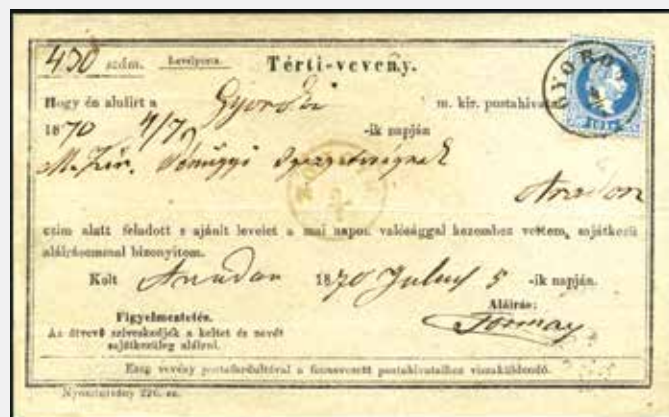 430 szám. Levélposta. Térti-vevény.
GYOROK
Hogy én alulirt a Gyoroki m. kir. postahivatal
1870 4/7 -ik napján
M. kir. Pénzügyi Igazgatóságnak
Aradon
czim alatt feladott s ajánlt levelet a mai napon valósággal kezemhez vettem, sajátkezü
aláirásommal bizonyitom.
Kelt Aradon 1870 July 5 -ik napján.
Figyelmeztetés. Aláirás:
Az átvevő sziveskedjék a keltet és nevét
sajátkezüleg aláirni. Tormay
Ezen vevény postafordultával a fennevezett postahivatalhoz visszaküldendő.
Nyomtatvány 226. sz.